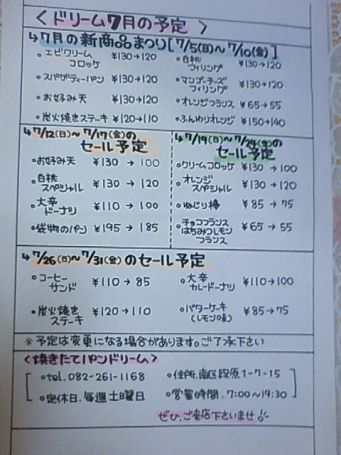 〈ドリーム7月の予定〉
↳7月の新商品まつり[7/5(日)〜7/10(金)]
・エビクリームコロッケ ¥130→120
・スパゲティーパン ¥130→120
・お好み天 ¥130→120
・炭火焼きステーキ ¥120→110
・白桃フィリング ¥130→120
・マンゴーチーズフィリング ¥130→120
・オレンジフランス ¥65→55
・ふんわりオレンジ ¥150→140
↳7/12(日)〜7/17(金)の
セール予定
・お好み天 ¥130→100
・白桃スペシャル ¥130→120
・大辛ドーナツ ¥110→100
・袋物のパン ¥195→185
↳7/19(日)〜7/24(金)の
セール予定
・クリームコロッケ ¥130→100
・オレンジスペシャル ¥130→120
・ねじり棒 ¥85→75
・チョコフランス
はちみつレモンフランス ¥65→55
↳7/26(日)〜7/31(金)のセール予定
・コーヒーサンド ¥110→85
・炭火焼きステーキ ¥120→110
・大辛カレードーナツ ¥110→100
・バターケーキ(レモン味) ¥85→75
※予定は変更になる場合があります。ご了承下さい
〈焼きたてパンドリーム〉
・tel.082-261-1168
・住所.南区段原1-7-15
・定休日.毎週土曜日
・営業時間.7:00〜19:30
ぜひ、ご来店下さいませ!!